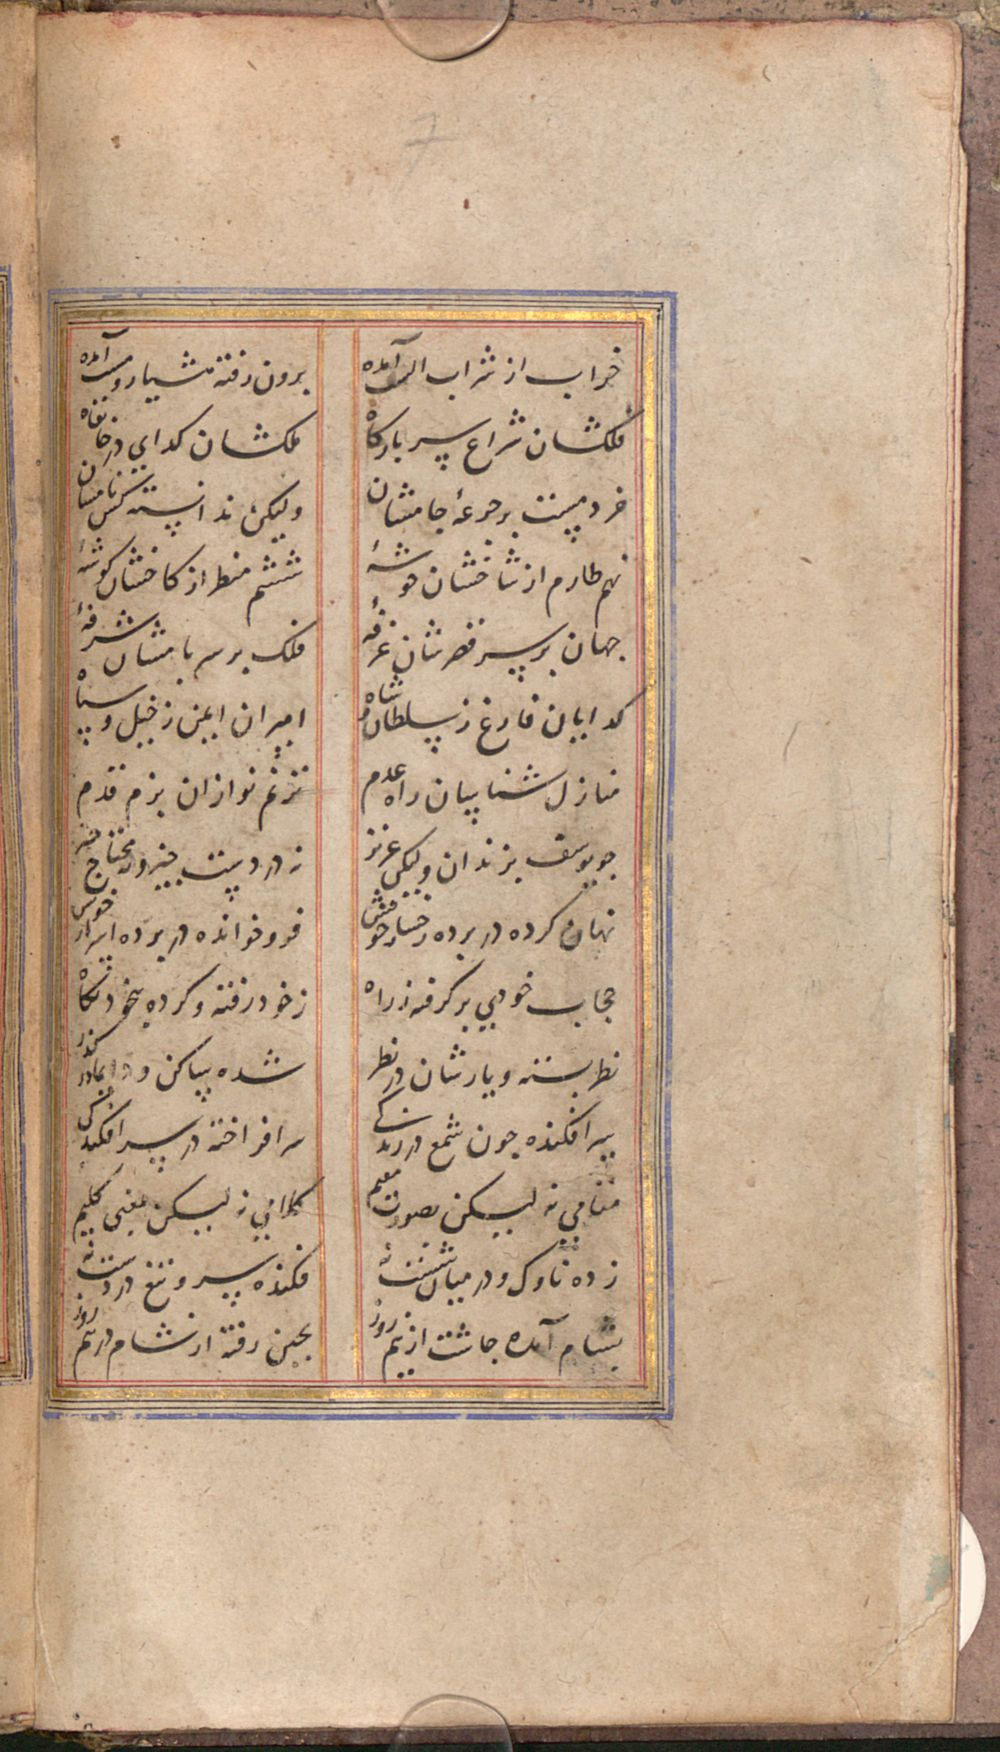 خراب از شراب الست آمده
برون رفته هشیار و مست آمده
فلکشان شراع سر بارکاه
ملکشان کدای در خانقاه
خرد مست بر جرعهٔ جامشان
ولیکن ندانسته کس نامشان
نهم طارم از شاخشان خوشهٔ
ششم منظر از کاخشان کوشهٔ
جهان بر سر قصرشان غرفهٔ
فلک بر سر بامشان شرفهٔ
کدایان فارغ ز سلطان و شاه
امیران ایمن ز خیل و سپاه
منازل شناسان راه عدم
ترنم نوازان بزم قدم
چو یوسف بزندان ولیکن عزیز
نه در دست چیز و نه محتاج چیز
نهان کرده در برده رخسار خویش
فرو خوانده در برده اسرار خویش
حجاب خودی بر کرفته ز راه
ز خود رفته و کرده بخود نکاه
نظر بسته و یارشان در نظر
شده ساکن و دایما در کذر
سرافکنده چون شمع در زندکی
سرافراخته در سرافکندکی
مقامی نه لیکن بصورت مقیم
کلامی نه لیکن بمعنی کلیم
زده ناوک و در میان شست نه
فکنده سر و تیغ در دست نه
بشام آمده چاشت از نیم روز
بچین رفته از شام در نیم روز